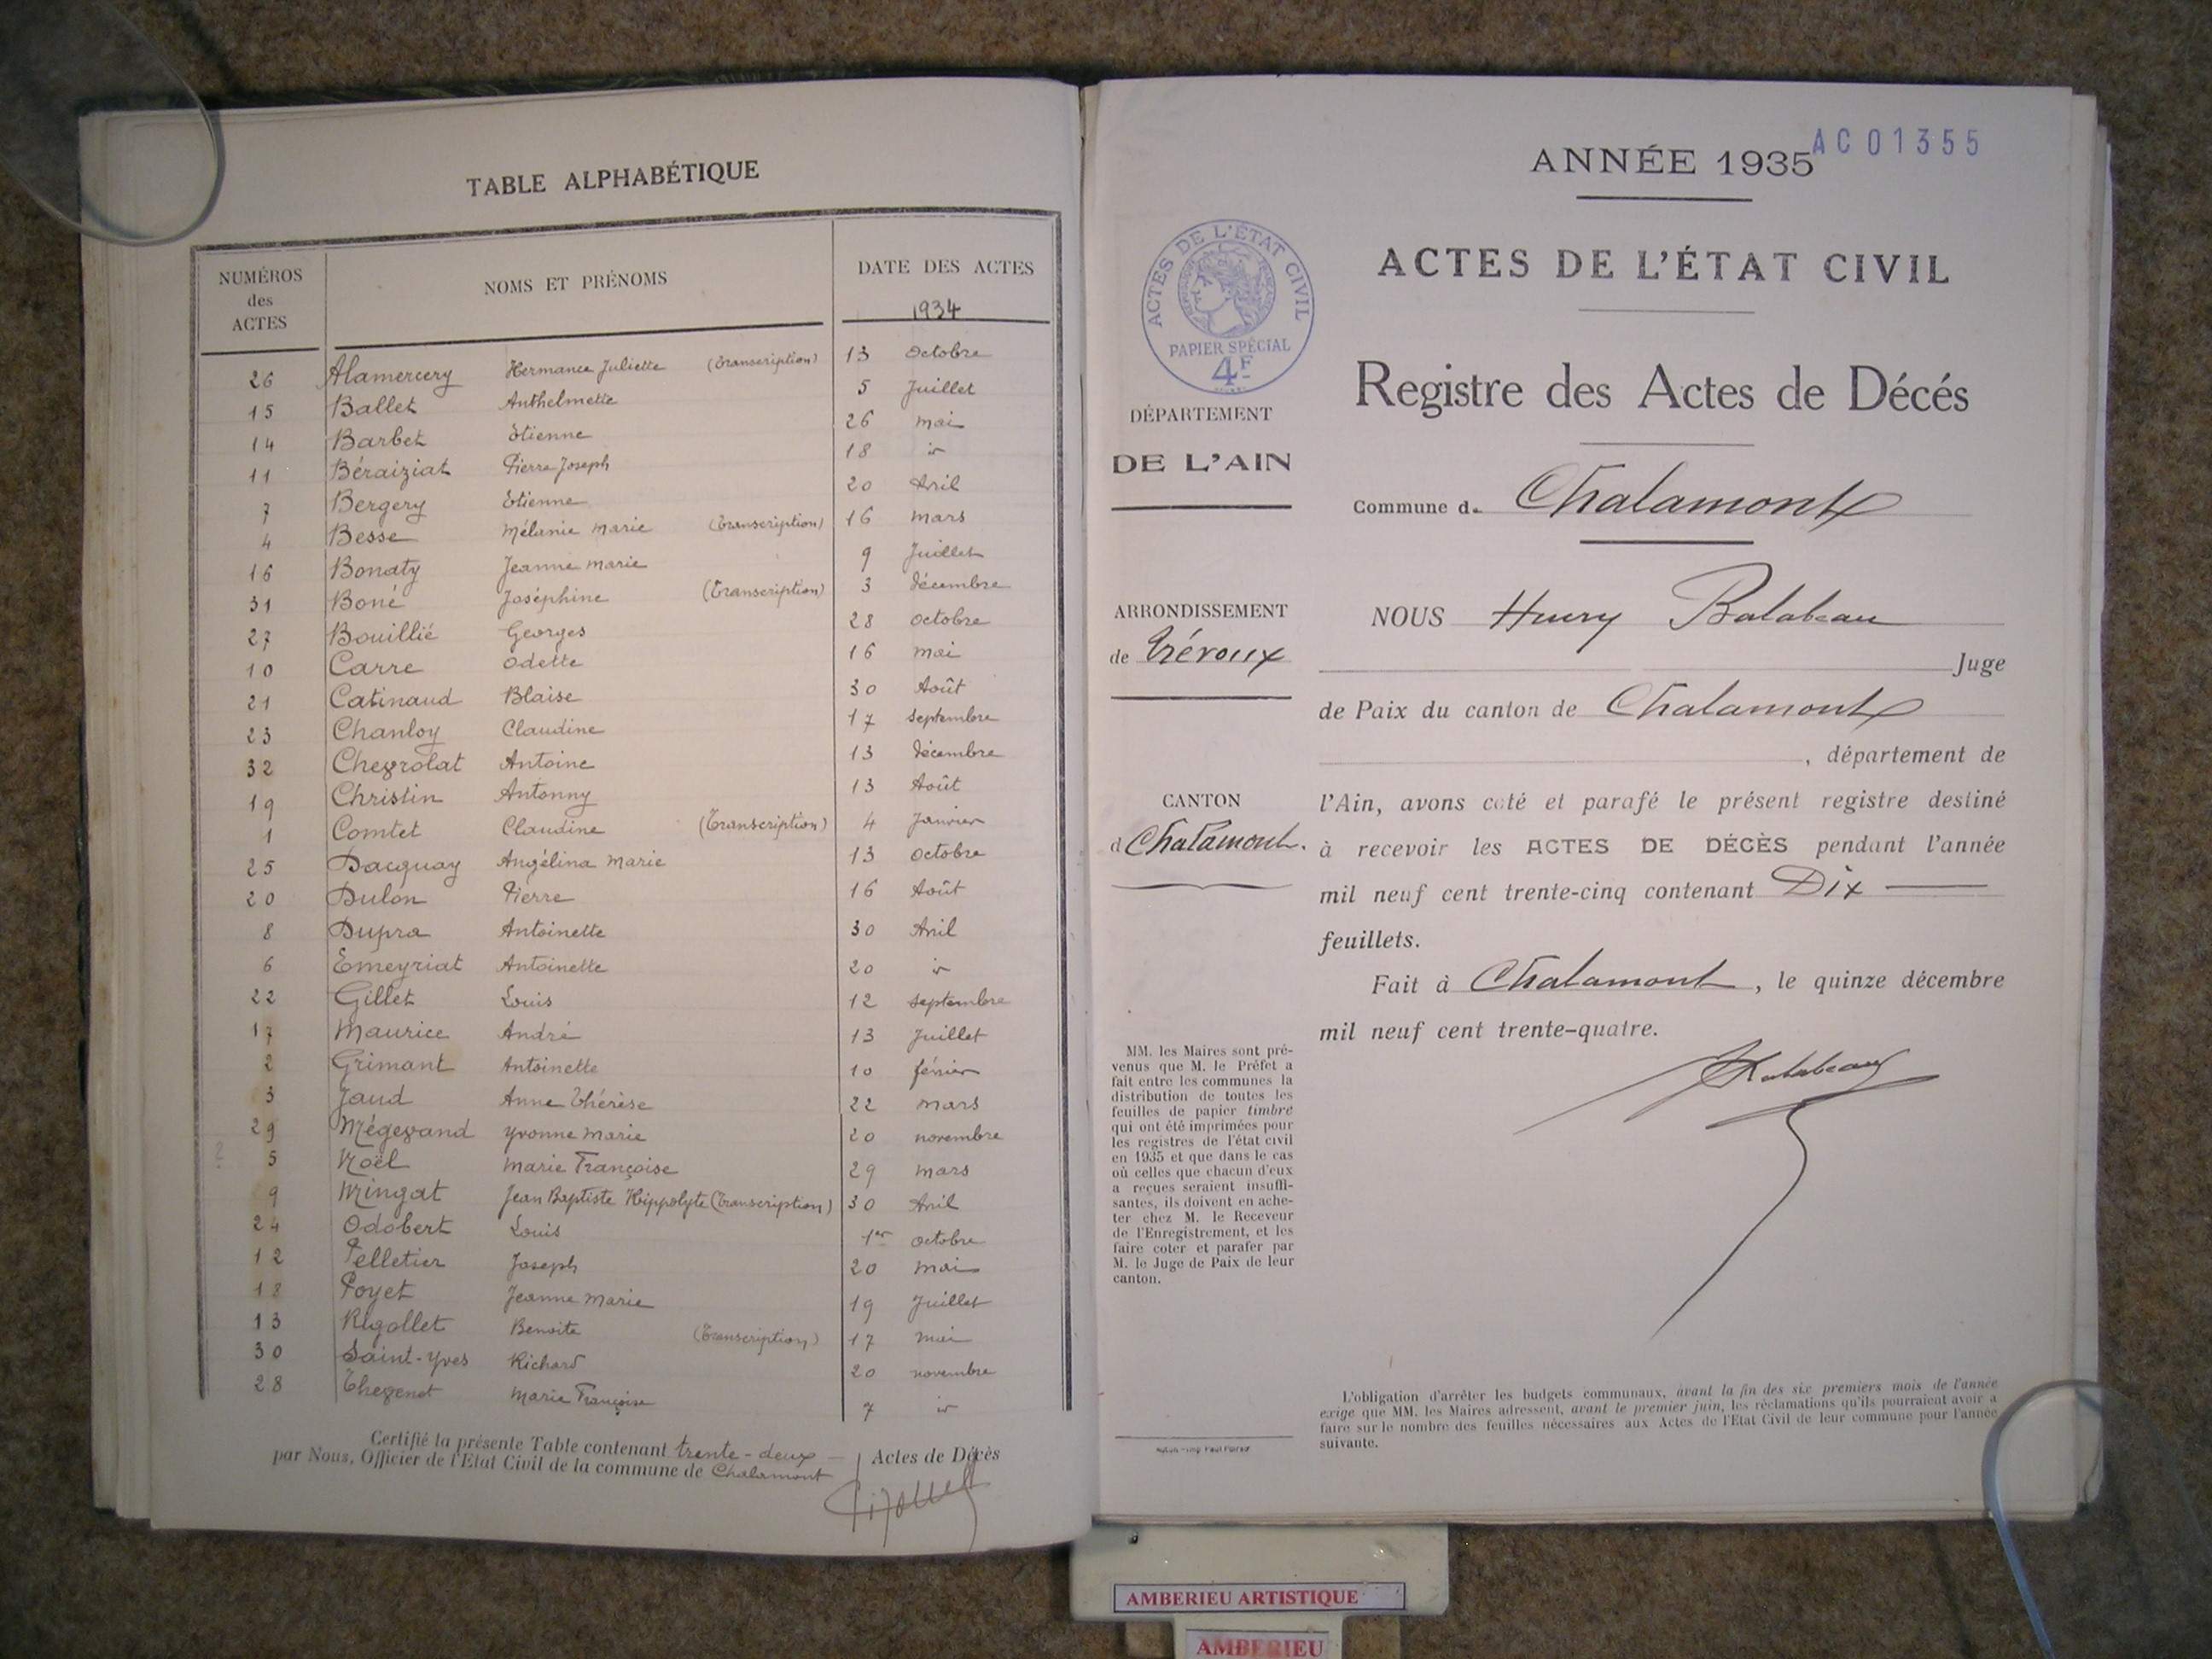 TABLE ALPHABÉTIQUE
NUMÉROS des ACTES NOMS ET PRÉNOMS DATE DES ACTES
1934
26 Alamercery Hermance Juliette (Transcription) 13 Octobre
15 Ballet Anthelmette 5 Juillet
14 Barbet Etienne 26 mai
11 Béraiziat Pierre Joseph 18 id
7 Bergery Etienne 20 Avril
4 Besse Mélanie Marie (Transcription) 16 mars
16 Bonaty Jeanne Marie 9 Juillet
31 Boné Joséphine (Transcription) 3 décembre
27 Bouillié Georges 28 octobre
10 Carre Odette 16 mai
21 Catinaud Blaise 30 Août
23 Chanloy Claudine 17 septembre
32 Chevrolat Antoine 13 décembre
19 Christin Antonny 13 Août
1 Comtet Claudine (Transcription) 4 Janvier
25 Dacquay Angélina Marie 13 octobre
20 Dulon Pierre 16 Août
8 Dupra Antoinette 30 Avril
6 Emeyriat Antoinette 20 id
22 Gillet Louis 12 septembre
17 Maurice André 13 Juillet
2 Grimant Antoinette 10 février
3 Jaud Anne Thérèse 22 mars
29 Mégevand Yvonne Marie 20 novembre
5 Noël Marie Françoise 29 mars
9 Mingat Jean Baptiste Hippolyte (Transcription) 30 Avril
24 Odobert Louis 1er octobre
12 Pelletier Joseph 20 mai
18 Poyet Jeanne Marie 19 Juillet
13 Rigollet Benoite (Transcription) 17 mai
30 Saint-Yves Richard 20 novembre
28 Thevenot Marie Françoise 7 id
Certifié la présente Table contenant trente-deux Actes de Décès
par Nous, Officier de l'Etat Civil de la commune de Chalamont
AC01355
ANNÉE 1935
ACTES DE L'ÉTAT CIVIL
Registre des Actes de Décés
Commune d. Chalamont
NOUS Henry Balabeau
Juge
de Paix du canton de Chalamont
, département de
l'Ain, avons coté et parafé le présent registre destiné
à recevoir les ACTES DE DÉCÈS pendant l'année
mil neuf cent trente-cinq contenant Dix
feuillets.
Fait à Chalamont, le quinze décembre
mil neuf cent trente-quatre.
Balabeau
ACTES DE L'ÉTAT CIVIL
RÉPUBLIQUE FRANÇAISE
PAPIER SPÉCIAL
4F
DÉPARTEMENT
DE L'AIN
ARRONDISSEMENT
de Trévoux
CANTON
d Chalamont.
MM. les Maires sont pré-
venus que M. le Préfet a
fait entre les communes la
distribution de toutes les
feuilles de papier timbré
qui ont été imprimées pour
les registres de l'état civil
en 1935 et que dans le cas
où celles que chacun d'eux
a reçues seraient insuffi-
santes, ils doivent en ache-
ter chez M. le Receveur
de l'Enregistrement, et les
faire coter et parafer par
M. le Juge de Paix de leur
canton.
L'obligation d'arrêter les budgets communaux, avant la fin des six premiers mois de l'année
exige que MM. les Maires adressent, avant le premier juin, les réclamations qu'ils pourraient avoir a
faire sur le nombre des feuilles nécessaires aux Actes de l'Etat Civil de leur commune pour l'année
suivante.
AMBERIEU ARTISTIQUE
AMBERIEU